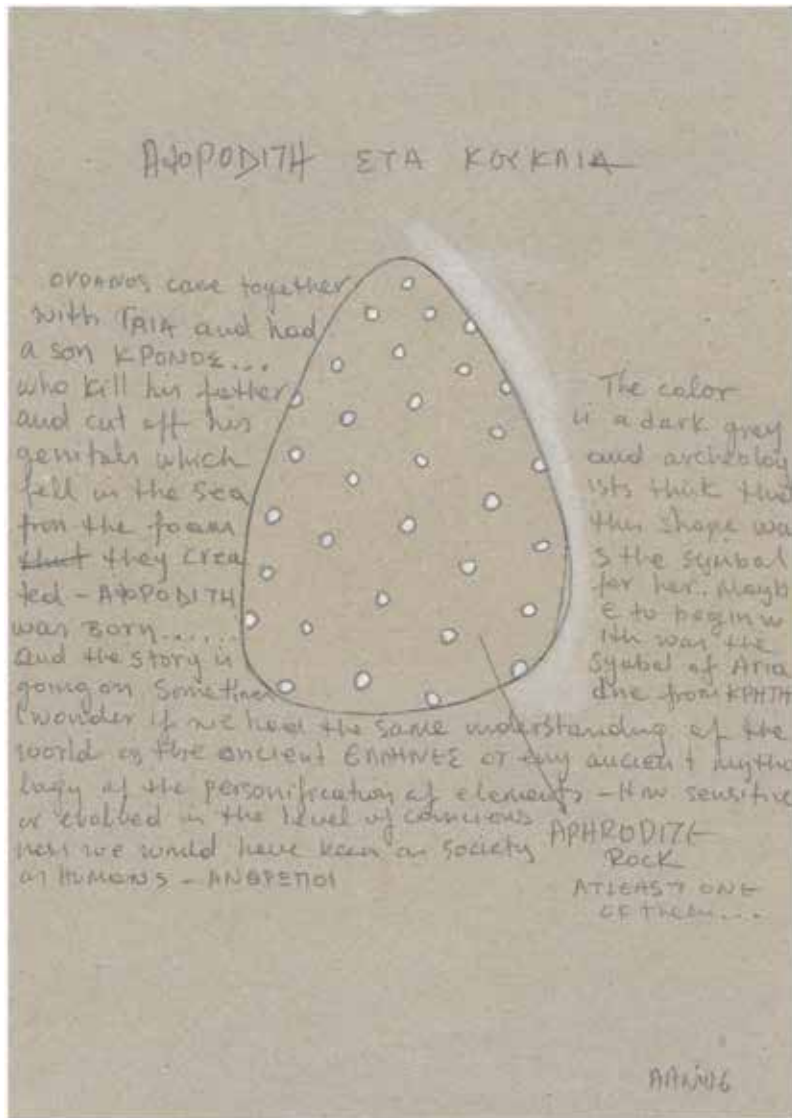 ΑΦΟΡΟDΙΤΗ ΣΤΑ ΚΟΥΚΛΙΑ
ΟΥΡΑΝΟS came together
with ΓΑΙΑ and had
a son ΚΡΟΝΟΣ...
who kill his father
and cut off his
genitals which
fell in the sea
from the foam
that they crea
ted - ΑΦΟΡΟDΙΤΗ
was BORN......
and the story is
going on sometimes
I wonder if we had the same understanding of the
world as the ancient ΕΛΛΗΝΕΣ or any ancient mytho
logy of the personification of elements - How sensitive
or evolved in the level of conscious
ness we would have been as society
as HUMANS - ΑΝΘΡΕΠΟΙ
The color
is a dark grey
and archeolog
ists think that
this shape wa
s the symbol
for her. Mayb
e to begin w
ith was the
Sybal of Aria
dne from ΚΡΗΤΗ
APHRODITE
Rock
ATLEAST ONE
OF them...